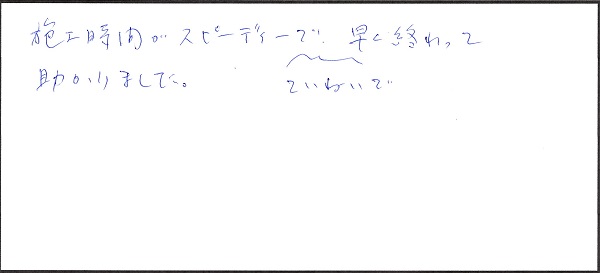 施工時間がスピーディーで、早く終わって
助かりました。
ていねいで